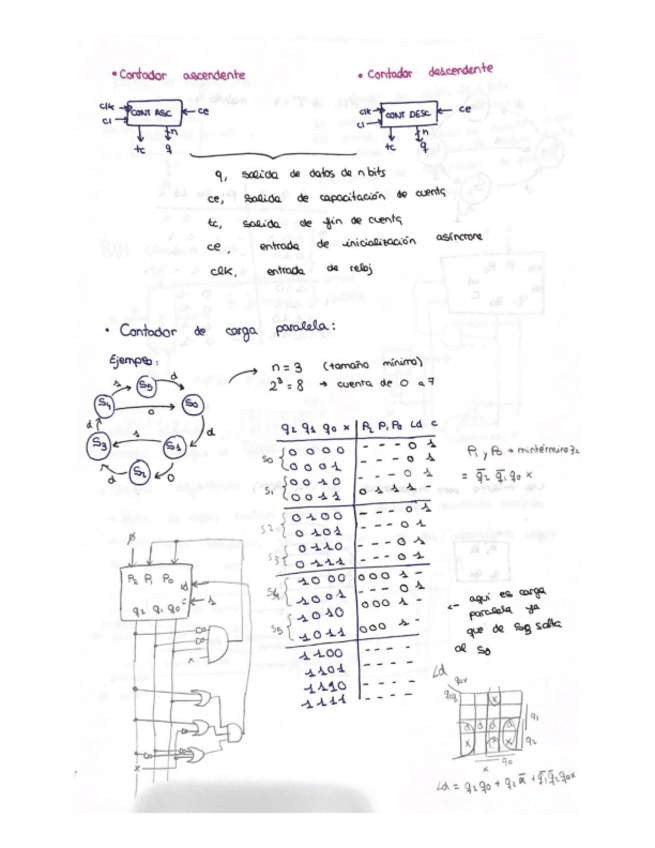 • Contador ascendente
• Contador descendente
clk
cl
CONT ASC
ce
tc
n
q
clk
cl
CONT DESC
ce
tc
n
q
q, salida de datos de n bits
ce, salida de capacitación de cuenta
tc, salida de fin de cuenta
ce, entrada de inicialización asíncrona
clk, entrada de reloj
• Contador de carga paralela:
Ejemplo:
n = 3 (tamaño mínimo)
2³ = 8 → cuenta de 0 a 7
S5
S4
S0
S3
S1
S2
q2 q1 q0 x P2 P1 P0 Ld C
S0 0 0 0 0 - - - 0 1
0 0 0 1 - - - 0 1
S1 0 0 1 0 - - - 0 1
0 0 1 1 0 1 1 1 -
S2 0 1 0 0 - - - 0 1
0 1 0 1 - - - 0 1
S3 0 1 1 0 - - - 0 1
0 1 1 1 - - - 0 1
S4 1 0 0 0 0 0 0 1 -
1 0 0 1 - - - 0 1
S5 1 0 1 0 0 0 0 1 -
1 0 1 1 0 0 0 1 -
1 1 0 0 - - - -
1 1 0 1 - - - -
1 1 1 0 - - - -
1 1 1 1 - - - -
P1 y P0 → mintérmino 3
= q̄2 q̄1 q0 x
<- aquí es carga
paralela ya
que de salta
al S0
P2 P1 P0
Ld
C
1
q2 q1 q0
x
x
Ld
q0x
q1
q2
q0
x
Ld = q2q0 + q2x̄ + q̄1q̄2q0x